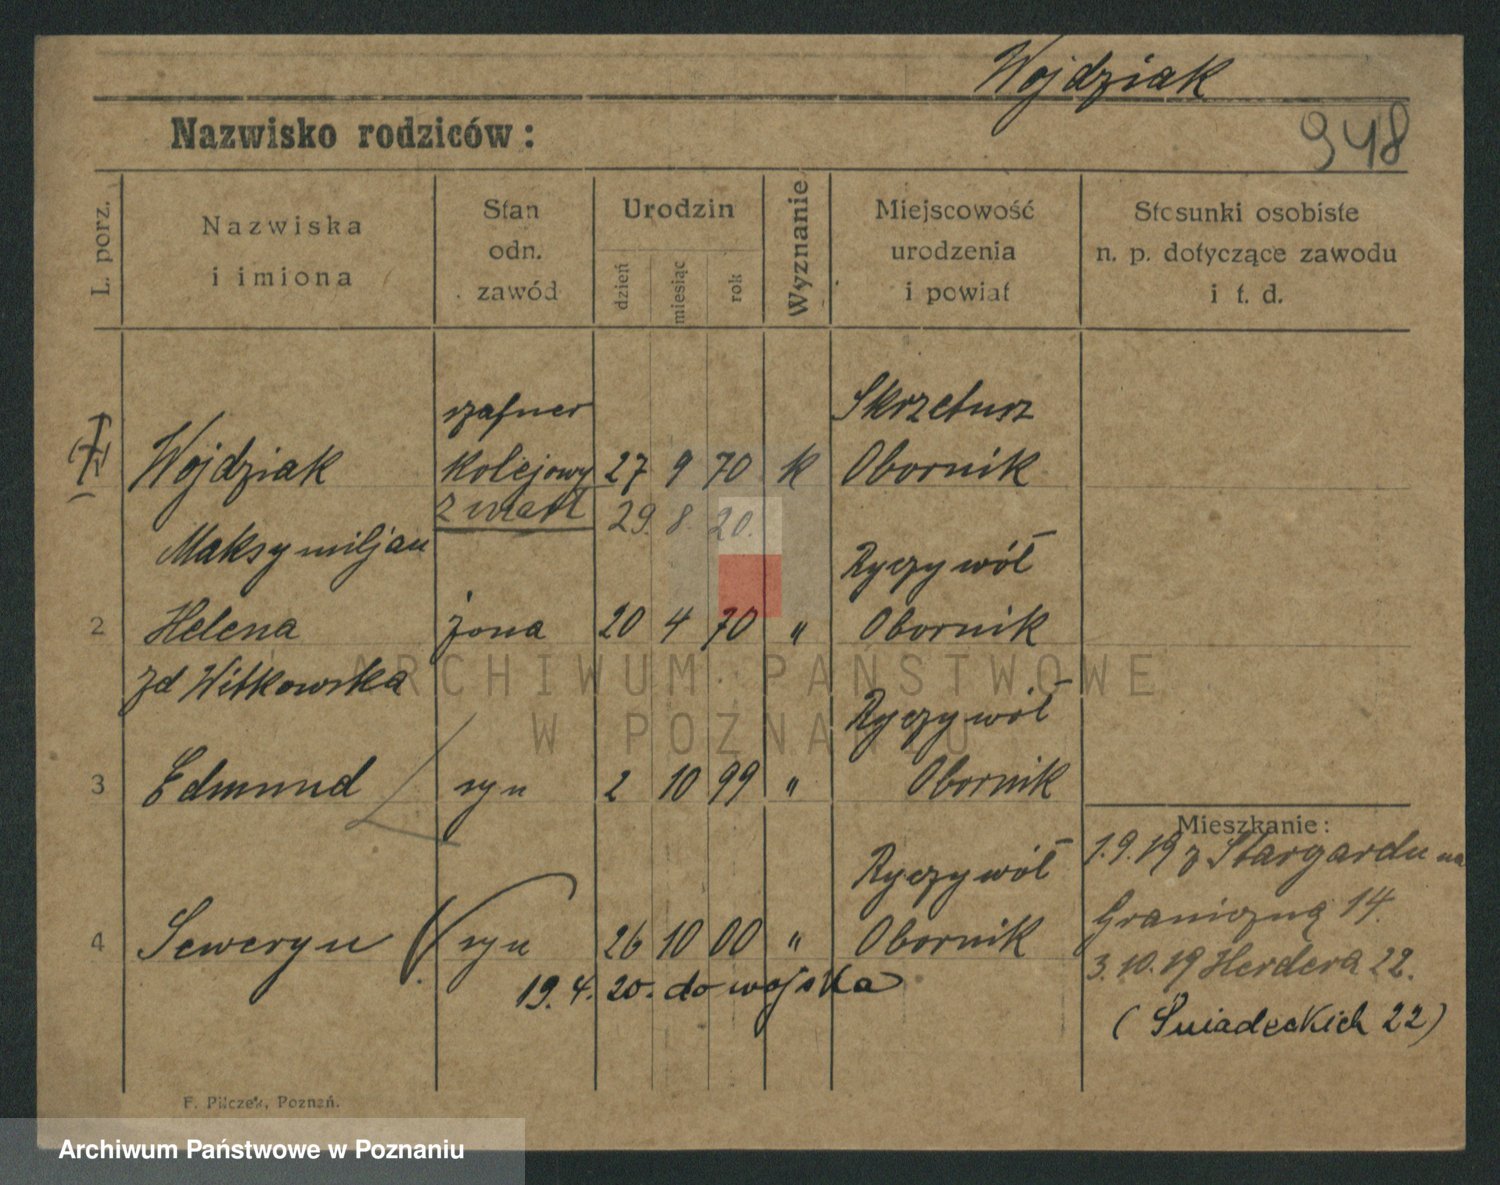 Wojdziak
Nazwisko rodziców:
948
L. porz.
Nazwiska
i imiona
Stan
odn.
zawód
Urodzin
dzień
miesiąc
rok
Wyznanie
Miejscowość
urodzenia
i powiat
Stosunki osobiste
n. p. dotyczące zawodu
i t. d.
szafner Skrzetusz
Wojdziak kolejowy 27 9 70 k Obornik
zmarł 29. 8. 20.
Maksymiljan Ryczywół
2 Helena żona 20 4 70 " Obornik
zd Witkowska
ARCHIWUM PAŃSTWOWE
W POZNANIU
Ryczywół
3 Edmund syn 2 10 99 " Obornik
Mieszkanie:
1.9.19 z Stargardu na
Ryczywół
Graniczną 14.
4 Seweryn syn 26 10 00 " Obornik
3.10.19 Herdera 22.
19.4.20. do wojska
(Śniadeckich 22)
F. Pilczek, Poznań.
Archiwum Państwowe w Poznaniu